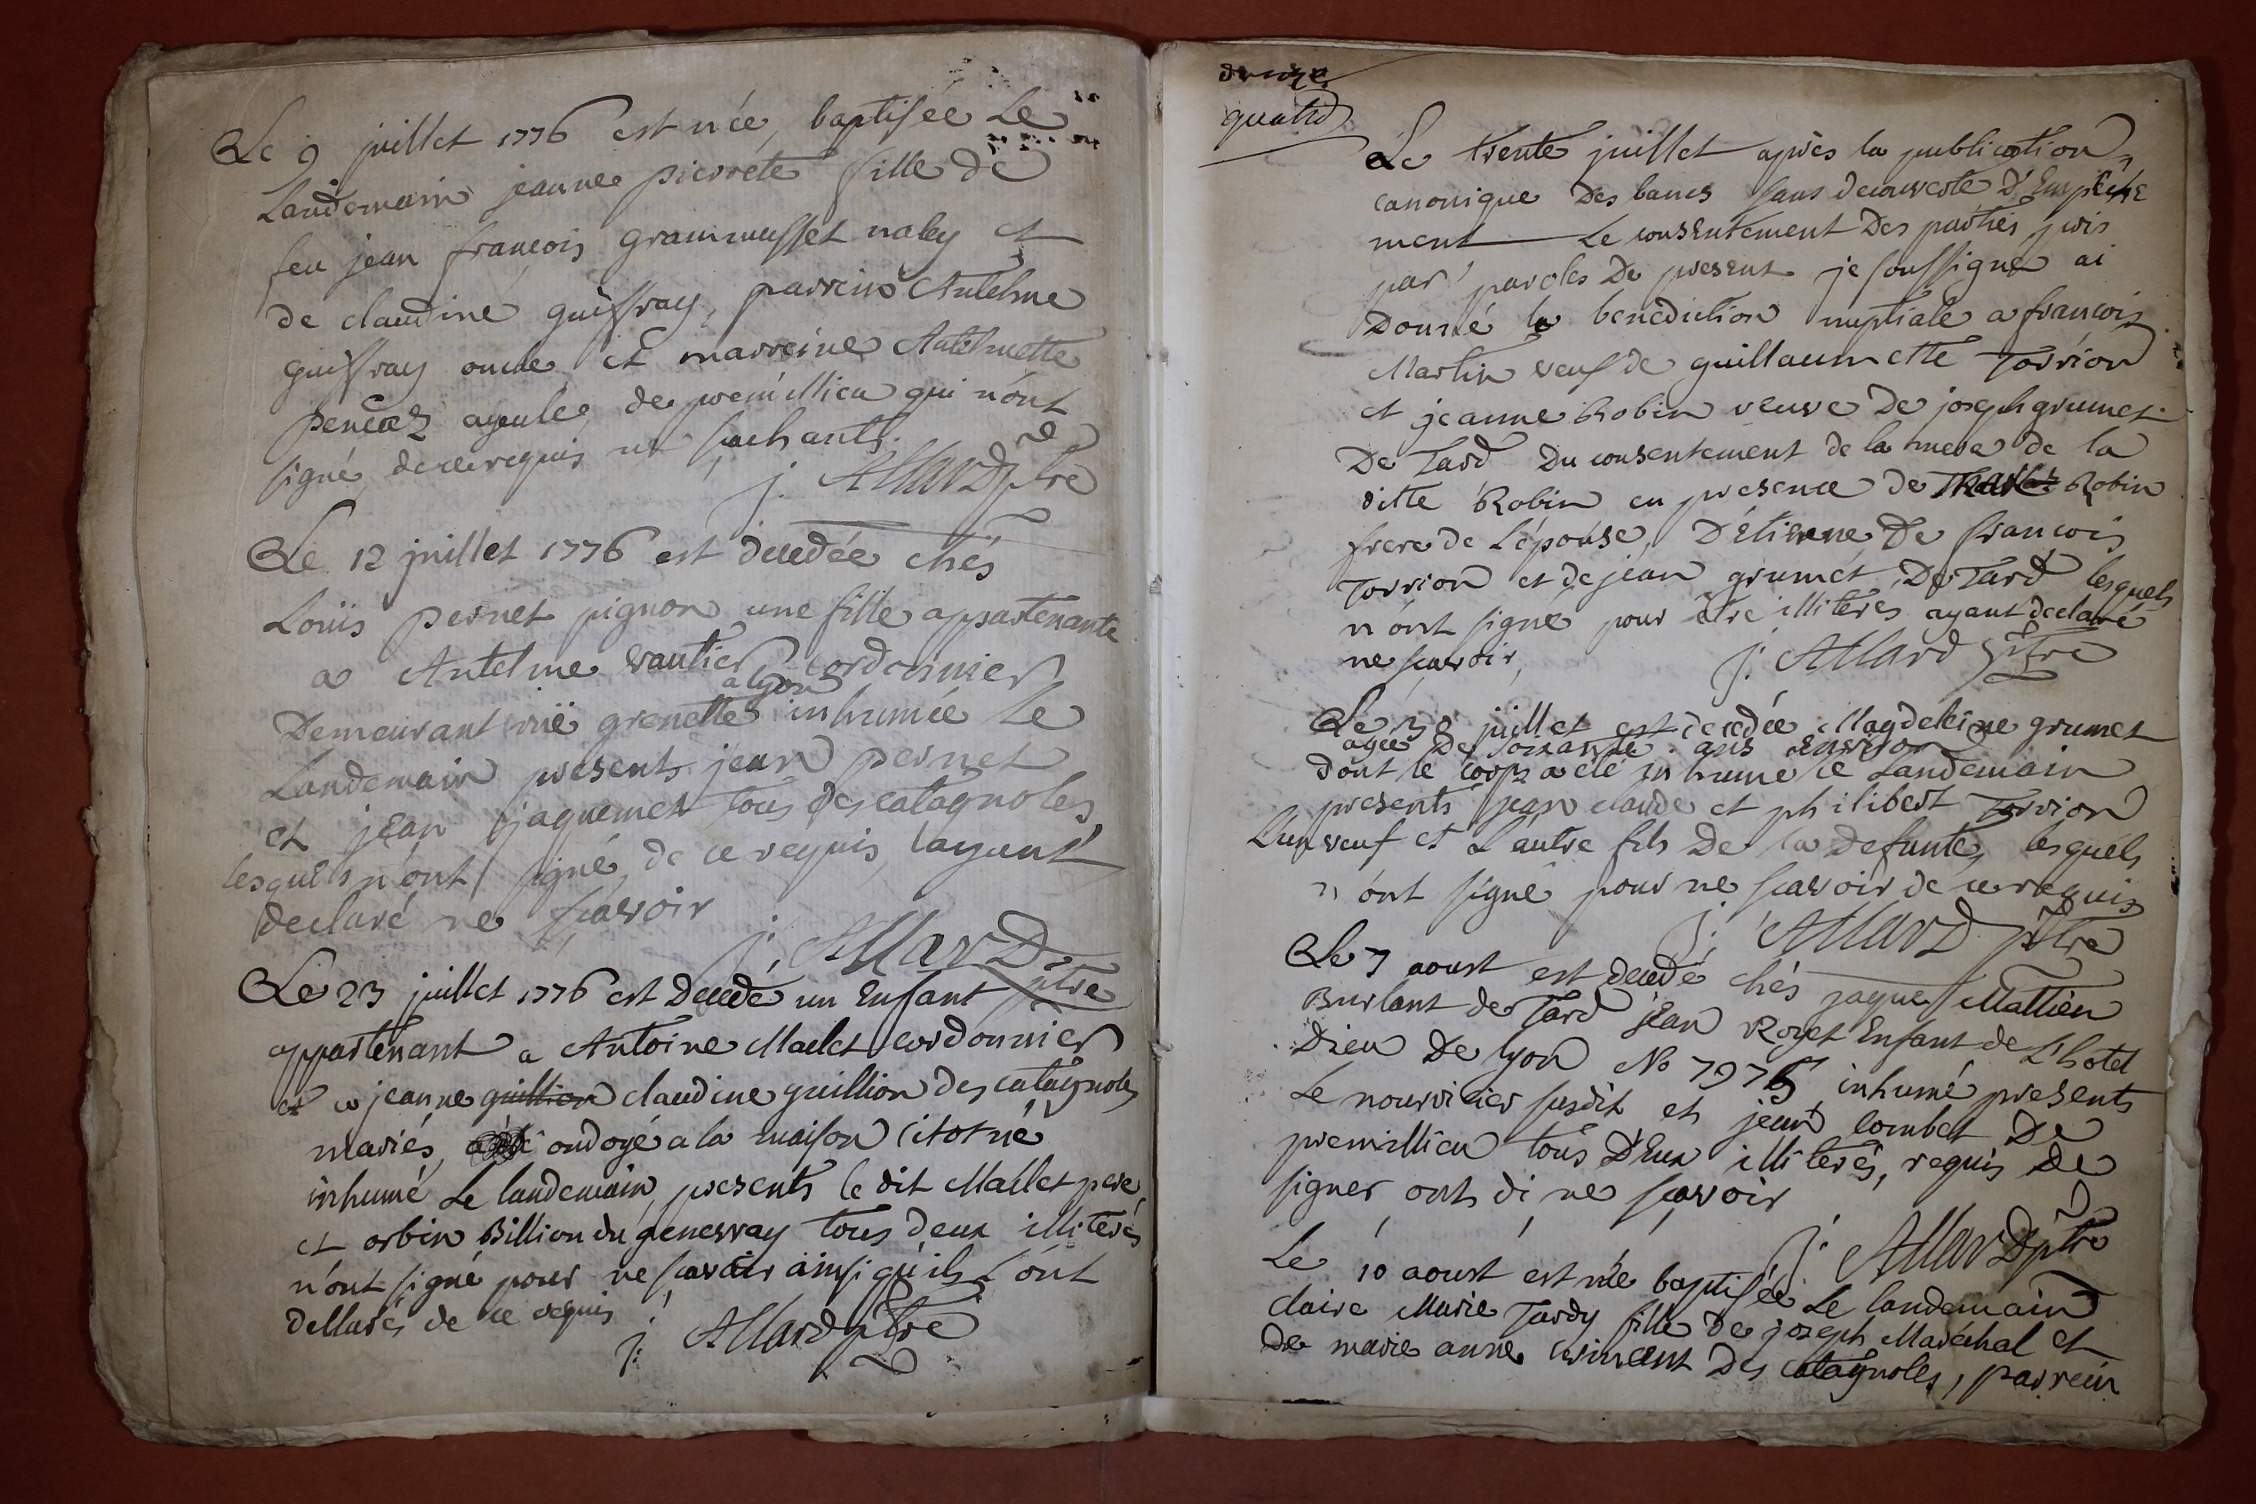 Le 9 juillet 1776 est née, baptisée Le
Landemain jeanne pierrete fille de
feu jean françois grammusset naley et
de claudine guiffray, parrein Antelme
guiffray oncle et marreine Antelmette
pencaz ayeule de premillieu qui n'ont
signé de ce requis ne sachants.
j. Allard ptre
Le 12 juillet 1776 est decedée chés
Loüis pernet pignon une fille appartenante
a Antelme vautier cordonnier
a lyon
Demeurant rüe grenette inhumée Le
Landemain presents jean pernet
et jean jaquemet tous des catagnoles
lesquels n'ont signé de ce requis, layant
declaré ne scavoir
j. Allard ptre
Le 23 juillet 1776 est Decedé un Enfant
appartenant a Antoine Maclet cordonnier
et a jeanne guillion claudine guillion des catagnoles
mariés, ondoyé a la maison citot né
inhumé Le landemain, presents le dit Maclet pere
et orbin Billion du genevray tous deux illiterés
n'ont signé pour ne scavoir ainsi qu'ils L'ont
dellarés de ce requis
j: Allard ptre
quatre
Le trente juillet après la publication
canonique Des bancs sans decouverte D'Empeche
ment Le consentement Des parties pris
par paroles De present je soussigné ai
Donné la benediction nuptiale a françois
Martin veuf de guillaumette Torrion
et jeanne Robin veuve De joseph grumet
De Tard Du consentement de la mere de la
ditte Robin en presence de Robin
frere de L'épouse, D'Etienne De françois
Torrion et de jean grumet De Tard lesquels
n'ont signé pour être illiterés ayant declaré
ne scavoir,
j: Allard ptre
Le 30 juillet est decedée Magdeleine grumet
agée De soixante ans environ
dont le corps a été inhumé le Landemain
presents jean claude et philibert Torrion
L'un veuf et L'autre fils De la defunte, lesquels
n'ont signé pour ne scavoir de ce requis
j: Allard ptre
Le 7 aoust est decedé chés jaque Mattieu
Burlant de Tard jean Royet Enfant de L'hotel
Dieu De lyon No 7976 inhumé presents
Le nourricier susdit et jean combet De
premillieu tous D'Eux illiterés, requis De
signer ont di ne scavoir
j: Allard ptre
Le 10 aoust est née baptisée Le landemain
claire Marie Tardy fille De joseph Maréchal et
de marie anne vincent Des catagnoles, parrein